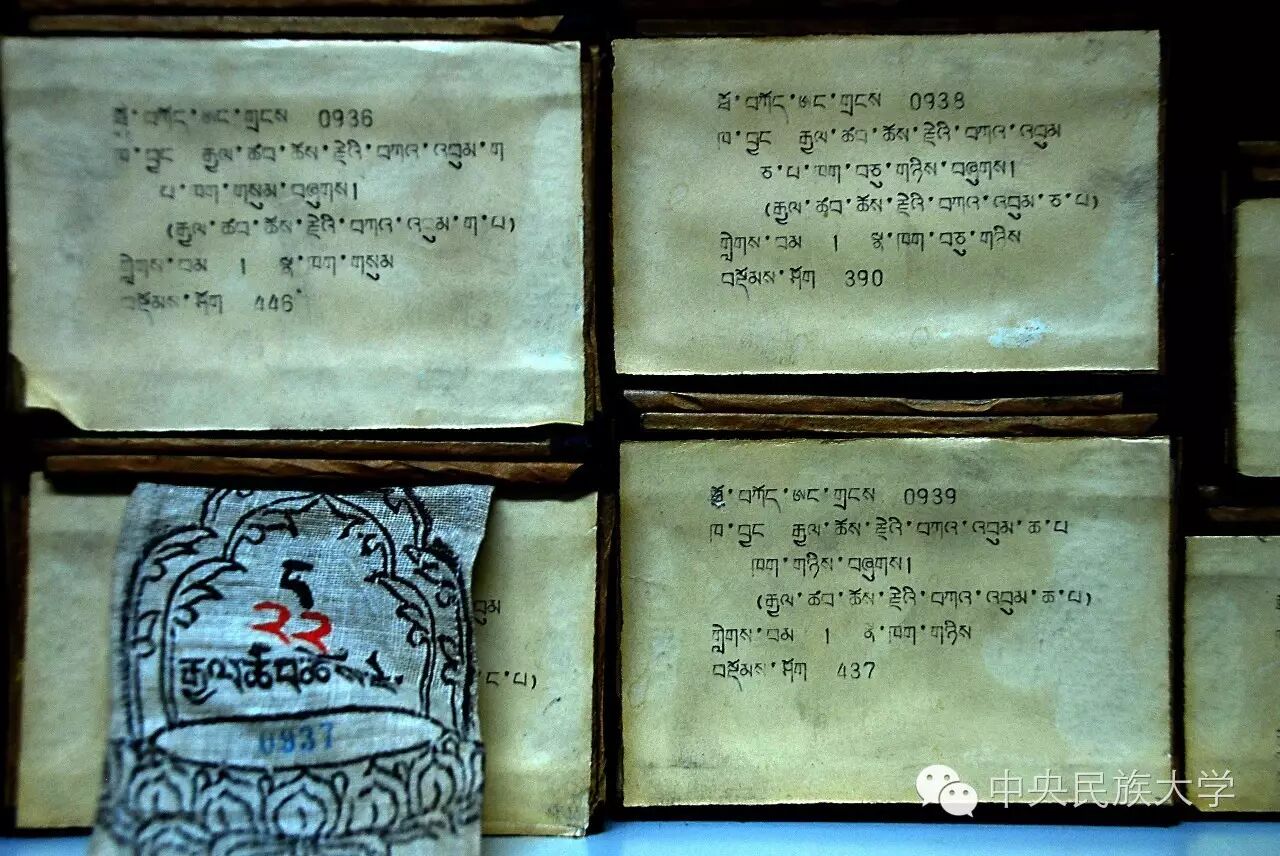 སྤྱི་བཀོད་ཨང་གྲངས 0936
ཁ་བྱང རྒྱལ་ཚབ་ཆོས་རྗེའི་བཀའ་འབུམ་ག
པ་ཁག་གསུམ་བཞུགས།
(རྒྱལ་ཚབ་ཆོས་རྗེའི་བཀའ་འབུམ་ག་པ)
གླེགས་བམ 1 ཁག་གསུམ
བསྡོམས་ཤོག 446
བཀོད་ཨང་གྲངས 0938
ཁ་བྱང རྒྱལ་ཚབ་ཆོས་རྗེའི་བཀའ་འབུམ
ཅ་པ་ཁག་བཅུ་གཉིས་བཞུགས།
(རྒྱལ་ཚབ་ཆོས་རྗེའི་བཀའ་འབུམ་ཅ་པ)
གླེགས་བམ 1 ཁག་བཅུ་གཉིས
བསྡོམས་ཤོག 390
ད
༢༢
རྒྱལ་ཚབ་ཆོས་རྗེ
0937
འབུམ
ང་པ)
བཀོད་ཨང་གྲངས 0939
ཁ་བྱང རྒྱལ་ཆོས་རྗེའི་བཀའ་འབུམ་ཆ་པ
ཁག་གཉིས་བཞུགས།
(རྒྱལ་ཚབ་ཆོས་རྗེའི་བཀའ་འབུམ་ཆ་པ)
གླེགས་བམ 1 ཁག་གཉིས
བསྡོམས་ཤོག 437
中央民族大学